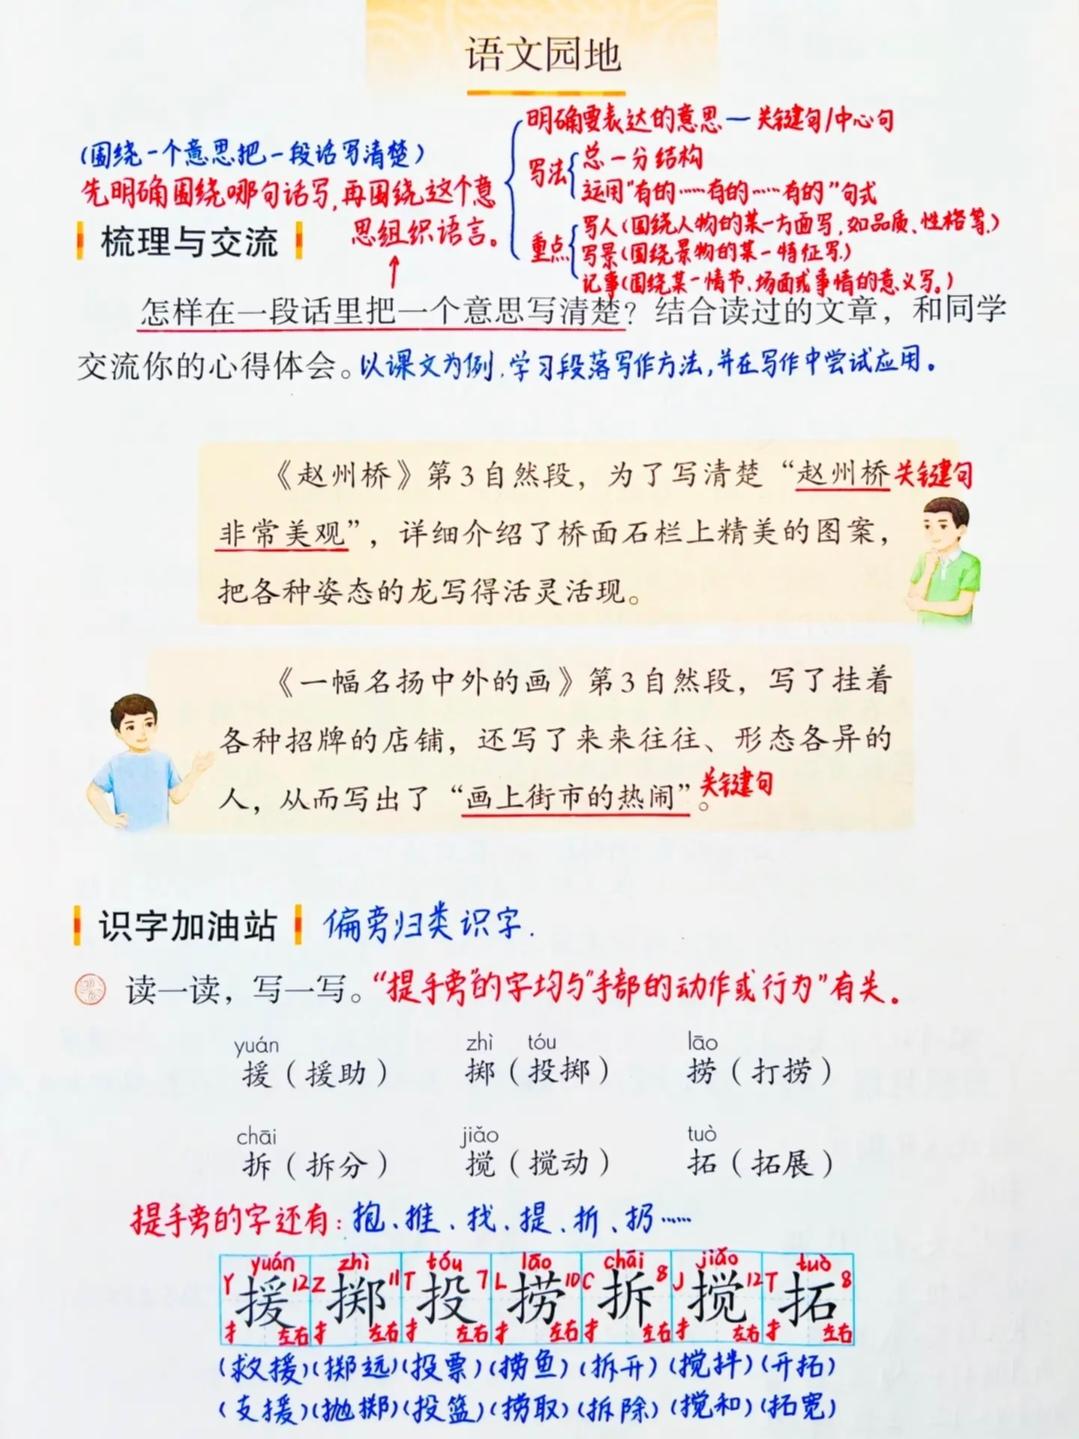 语文园地
明确要表达的意思—关键句/中心句
(围绕一个意思把一段话写清楚)
写法
总—分结构
先明确围绕哪句话写,再围绕这个意
运用"有的……有的……有的"句式
思组织语言。
重点
写人(围绕人物的某一方面写,如品质、性格等。)
写景(围绕景物的某一特征写。)
记事(围绕某一情节、场面或事情的意义写。)
梳理与交流
怎样在一段话里把一个意思写清楚？结合读过的文章，和同学
交流你的心得体会。以课文为例,学习段落写作方法,并在写作中尝试应用。
《赵州桥》第3自然段，为了写清楚“赵州桥 关键句
非常美观”，详细介绍了桥面石栏上精美的图案，
把各种姿态的龙写得活灵活现。
《一幅名扬中外的画》第3自然段，写了挂着
各种招牌的店铺，还写了来来往往、形态各异的
人，从而写出了“画上街市的热闹”。关键句
识字加油站 偏旁归类识字.
读一读，写一写。“提手旁”的字均与“手部的动作或行为”有关。
yuán zhì tóu lāo
援（援助） 掷（投掷） 捞（打捞）
chāi jiǎo tuò
拆（拆分） 搅（搅动） 拓（拓展）
提手旁的字还有:抱、推、找、提、折、扔……
yuán zhì tóu lāo chāi jiǎo tuò
Y 12 Z 11 T 7 L 10 C 8 J 12 T 8
援 掷 投 捞 拆 搅 拓
扌 左右 扌 左右 扌 左右 扌 左右 扌 左右 扌 左右 扌 左右
(救援)(掷远)(投票)(捞鱼)(拆开)(搅拌)(开拓)
(支援)(抛掷)(投篮)(捞取)(拆除)(搅和)(拓宽)